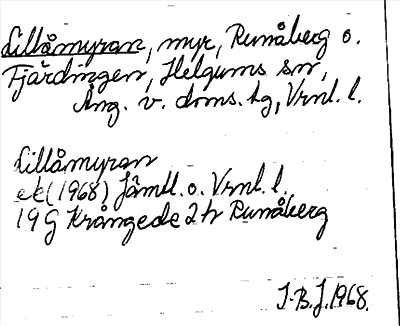 Lillåmyran, myr, Runåberg o.
Fjärdingen, Helgums sn,
Ång. v. doms. hg, Vrnl. l.
Lillåmyran
ek (1968) Jämtl. o. Vrnl. l.
19G Krångede 2h Runåberg
J.B.J. 1968.